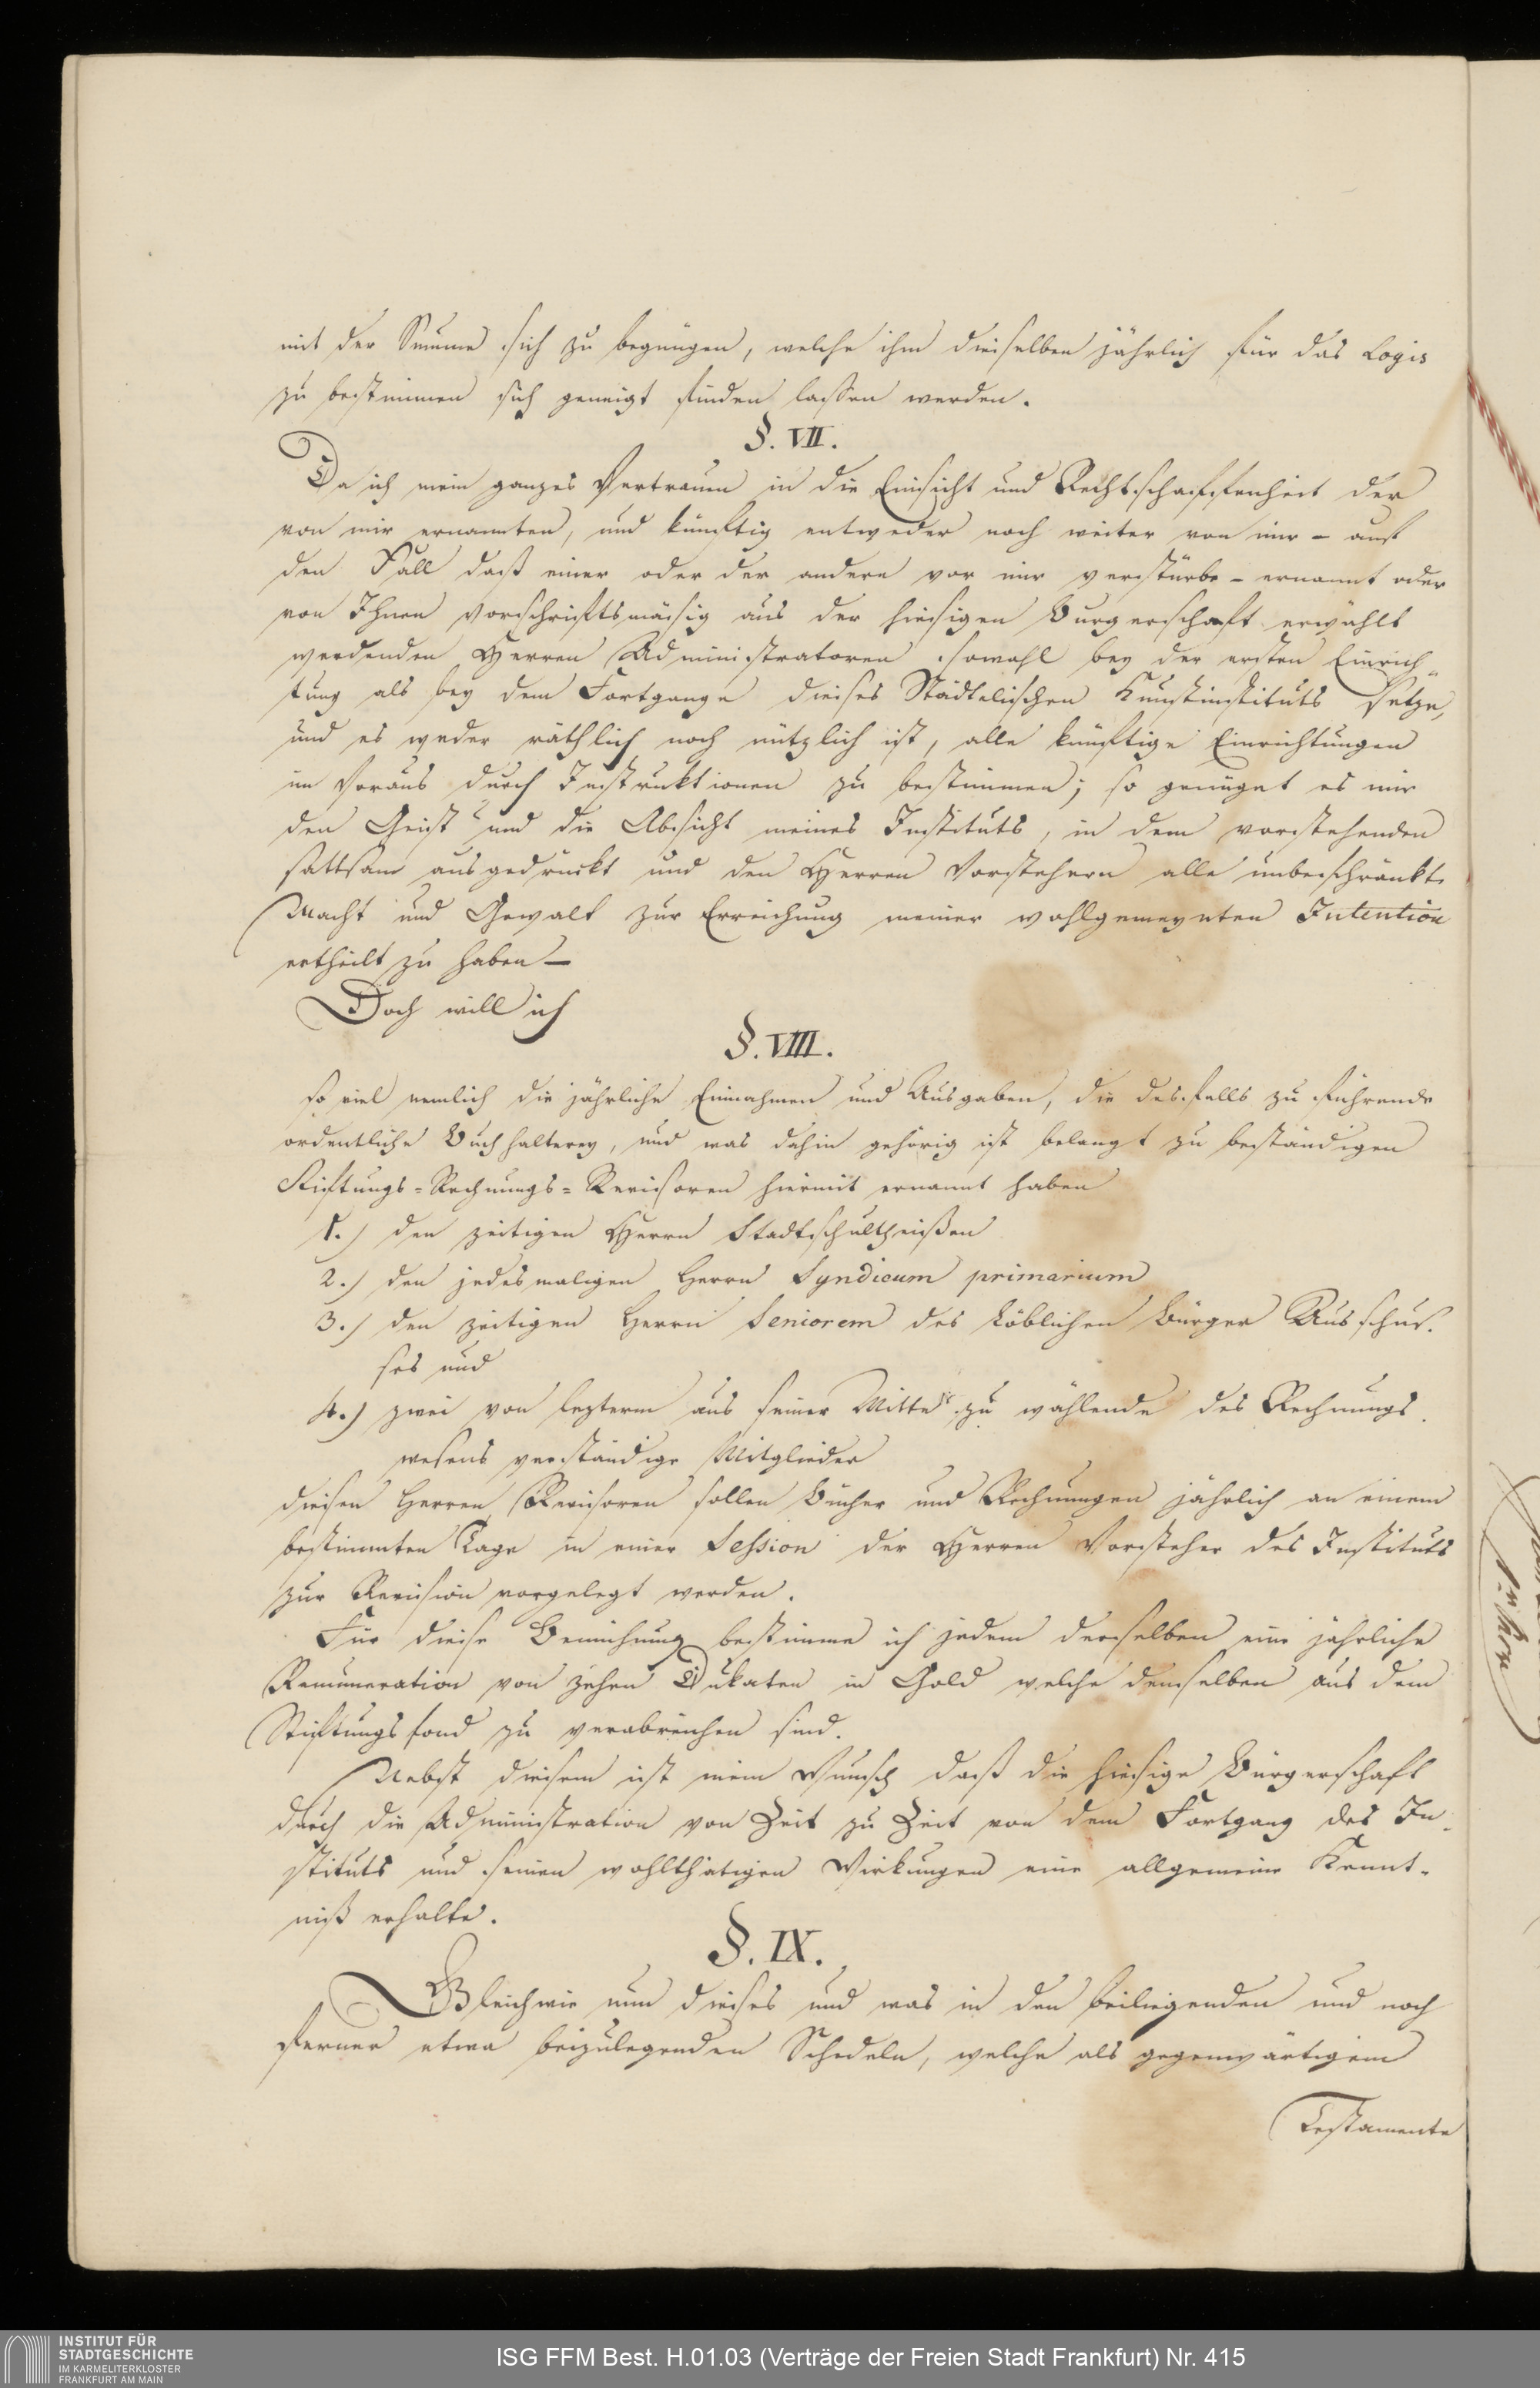 mit der Summe sich zu begnügen, welche ihm dieselben jährlich für das Logis
zu bestimmen sich geneigt finden lassen werden.
§. VII.
Da ich mein ganzes Vertrauen in die Einsicht und Rechtschaffenheit der
von mir ernannten, und künftig entweder noch weiter von mir – auf
den Fall daß einer oder der andere vor mir verstürbe – ernannt oder
von Ihnen vorschriftsmäsig aus der hiesigen Burgerschaft erwählt
werdenden Herren Administratoren sowohl bey der ersten Einrich„
tung als bey dem Fortgange dieses Städelischen Kunstinstituts setze,
und es weder räthlich noch nützlich ist, alle künftige Einrichtungen
im Voraus durch Instruktionen zu bestimmen; so genüget es mir
den Geist und die Absicht meines Instituts, in dem vorstehenden
sattsam ausgedrückt und den Herren Vorstehern alle unbeschränkte
Macht und Gewalt zur Erreichung meiner wohlgemeynten Intention
ertheilt zu haben –
Doch will ich
§. VIII.
so viel nemlich die jährliche Einnahmen und Ausgaben, die desfalls zu führende
ordentliche Buchhalterey, und was dahin gehörig ist belangt zu beständigen
Stiftungs-Rechnungs-Revisoren hiermit ernannt haben
1.) den zeitigen Herrn Stadtschultheißen
2.) den jedesmaligen Herrn Syndicum primarium
3.) den zeitigen Herrn Seniorem des Löblichen Bürger Ausschus-
ses und
4.) zwei von lezterm aus seiner Mitte zu wählende des Rechnungs-
wesens verständige Mitglieder
diesen Herren Revisoren sollen Bücher und Rechnungen jährlich an einem
bestimmten Tage in einer Session der Herren Vorsteher des Instituts
zur Revision vorgelegt werden.
Für diese Bemühung bestimme ich jedem derselben eine jährliche
Remuneration von zehen Dukaten in Gold welche denselben aus dem
Stiftungsfond zu verabreichen sind.
Nebst diesem ist mein Wunsch daß die hiesige Bürgerschaft
durch die Administration von Zeit zu Zeit von dem Fortgang des In-
stituts und seinen wohlthätigen Wirkungen eine allgemeine Kennt-
niß erhalte.
§. IX.
Gleichwie nun dieses und was in den beiliegenden und noch
ferner etwa beizulegenden Schedeln, welche als gegenwärtigem
Testamente
INSTITUT FÜR
STADTGESCHICHTE
IM KARMELITERKLOSTER
FRANKFURT AM MAIN
ISG FFM Best. H.01.03 (Verträge der Freien Stadt Frankfurt) Nr. 415